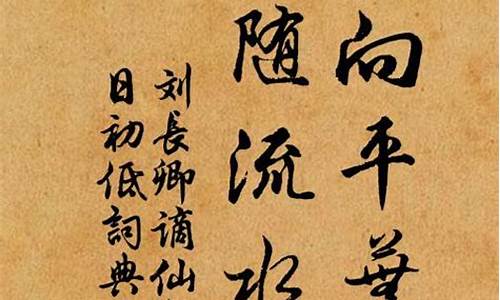 向平蕪
随流水
刘長卿謫仙
日初低詞典